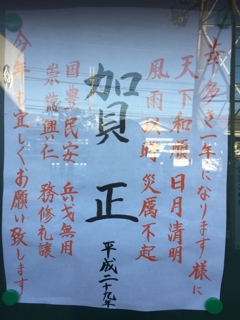 幸多き一年になります様に
天下和順 日月清明
風雨以時 災厲不起
賀正
平成二十九年
国豊民安 兵戈無用
崇徳興仁 務修礼譲
今年も宜しくお願い致します